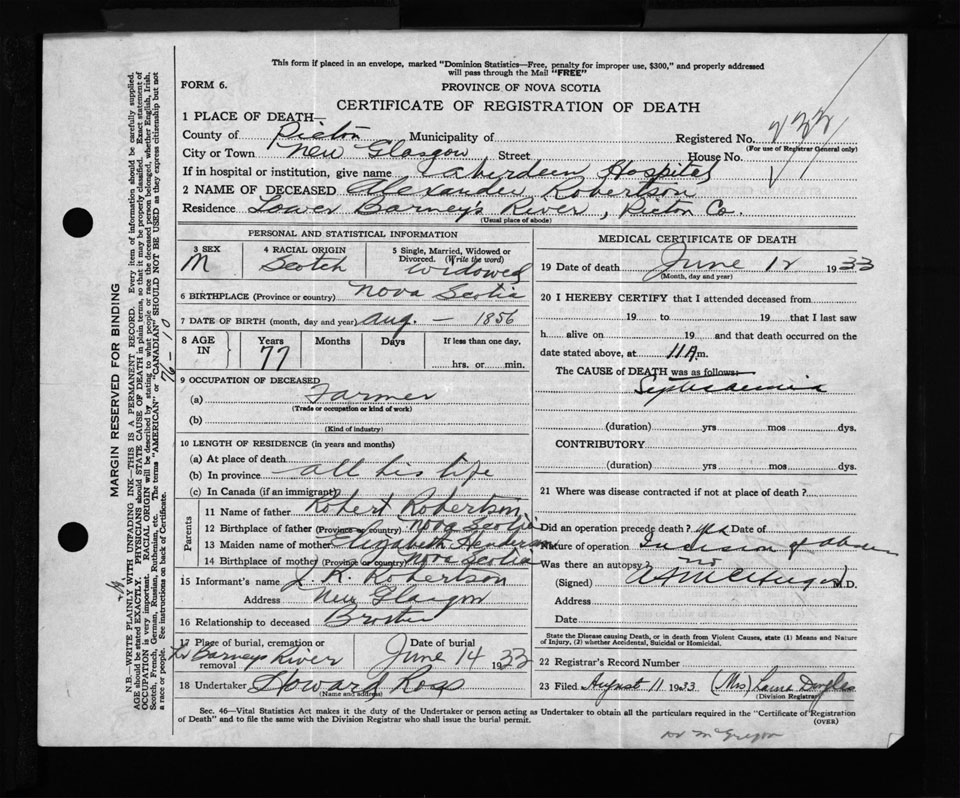 This form if placed in an envelope, marked "Dominion Statistics—Free, penalty for improper use, $300," and properly addressed
will pass through the Mail "FREE"
FORM 6.
PROVINCE OF NOVA SCOTIA
CERTIFICATE OF REGISTRATION OF DEATH
1 PLACE OF DEATH—
County of Pictou Municipality of Registered No.
(For use of Registrar General only)
City or Town New Glasgow Street House No.
If in hospital or institution, give name Aberdeen Hospital
2 NAME OF DECEASED Alexander Robertson
Residence Lower Barney's River, Pictou Co.
(Usual place of abode)
PERSONAL AND STATISTICAL INFORMATION
3 SEX 4 RACIAL ORIGIN 5 Single, Married, Widowed or Divorced. (Write the word)
M Scotch Widowed
6 BIRTHPLACE (Province or country) Nova Scotia
7 DATE OF BIRTH (month, day and year) Aug. – 1856
8 AGE IN Years Months Days If less than one day,
77 hrs. or min.
9 OCCUPATION OF DECEASED
(a) Farmer
(Trade or occupation or kind of work)
(b)
(Kind of industry)
10 LENGTH OF RESIDENCE (in years and months)
(a) At place of death
(b) In province all his life
(c) In Canada (if an immigrant)
Parents
11 Name of father Robert Robertson
12 Birthplace of father (Province or country) Nova Scotia
13 Maiden name of mother Elizabeth Henderson
14 Birthplace of mother (Province or country) Nova Scotia
15 Informant's name J. R. Robertson
Address New Glasgow
16 Relationship to deceased Brother
17 Place of burial, cremation or removal Date of burial
Lr Barneys River June 14 1933
18 Undertaker Howard Ross
(Name and address)
MEDICAL CERTIFICATE OF DEATH
19 Date of death June 12 1933
(Month, day and year)
20 I HEREBY CERTIFY that I attended deceased from
19 to 19 that I last saw
h alive on 19 and that death occurred on the
date stated above, at 11 A m.
The CAUSE of DEATH was as follows:
Septicaemia
(duration) yrs mos dys.
CONTRIBUTORY
(duration) yrs mos dys.
21 Where was disease contracted if not at place of death?
Did an operation precede death? Date of
Nature of operation Incision of
Was there an autopsy? no
(Signed) M.D.
Address
Date
State the Disease causing Death, or in death from Violent Causes, state (1) Means and Nature
of Injury, (2) whether Accidental, Suicidal or Homicidal.
22 Registrar's Record Number
23 Filed August 11 1933 (Mrs) Laura Douglas
(Division Registrar)
Sec. 46—Vital Statistics Act makes it the duty of the Undertaker or person acting as Undertaker to obtain all the particulars required in the "Certificate of Registration
of Death" and to file the same with the Division Registrar who shall issue the burial permit.
(OVER)
Dr McGregor
MARGIN RESERVED FOR BINDING
76 – 10
N.B.—WRITE PLAINLY WITH UNFADING INK—THIS IS A PERMANENT RECORD. Every item of information should be carefully supplied.
AGE should be stated EXACTLY. PHYSICIANS should STATE CAUSE OF DEATH in plain terms, so that it may be properly classified. Exact statement of
OCCUPATION is very important. RACIAL ORIGIN will be described by stating to what people or race the deceased person belonged, whether English, Irish,
Scotch, French, German, Russian, Ruthenian, etc. The terms "AMERICAN" or "CANADIAN" SHOULD NOT BE USED as they express citizenship but not
a race or people. See instructions on back of Certificate.